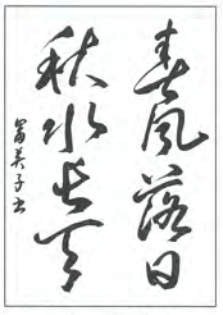 春風落日
秋水長天
富美子书